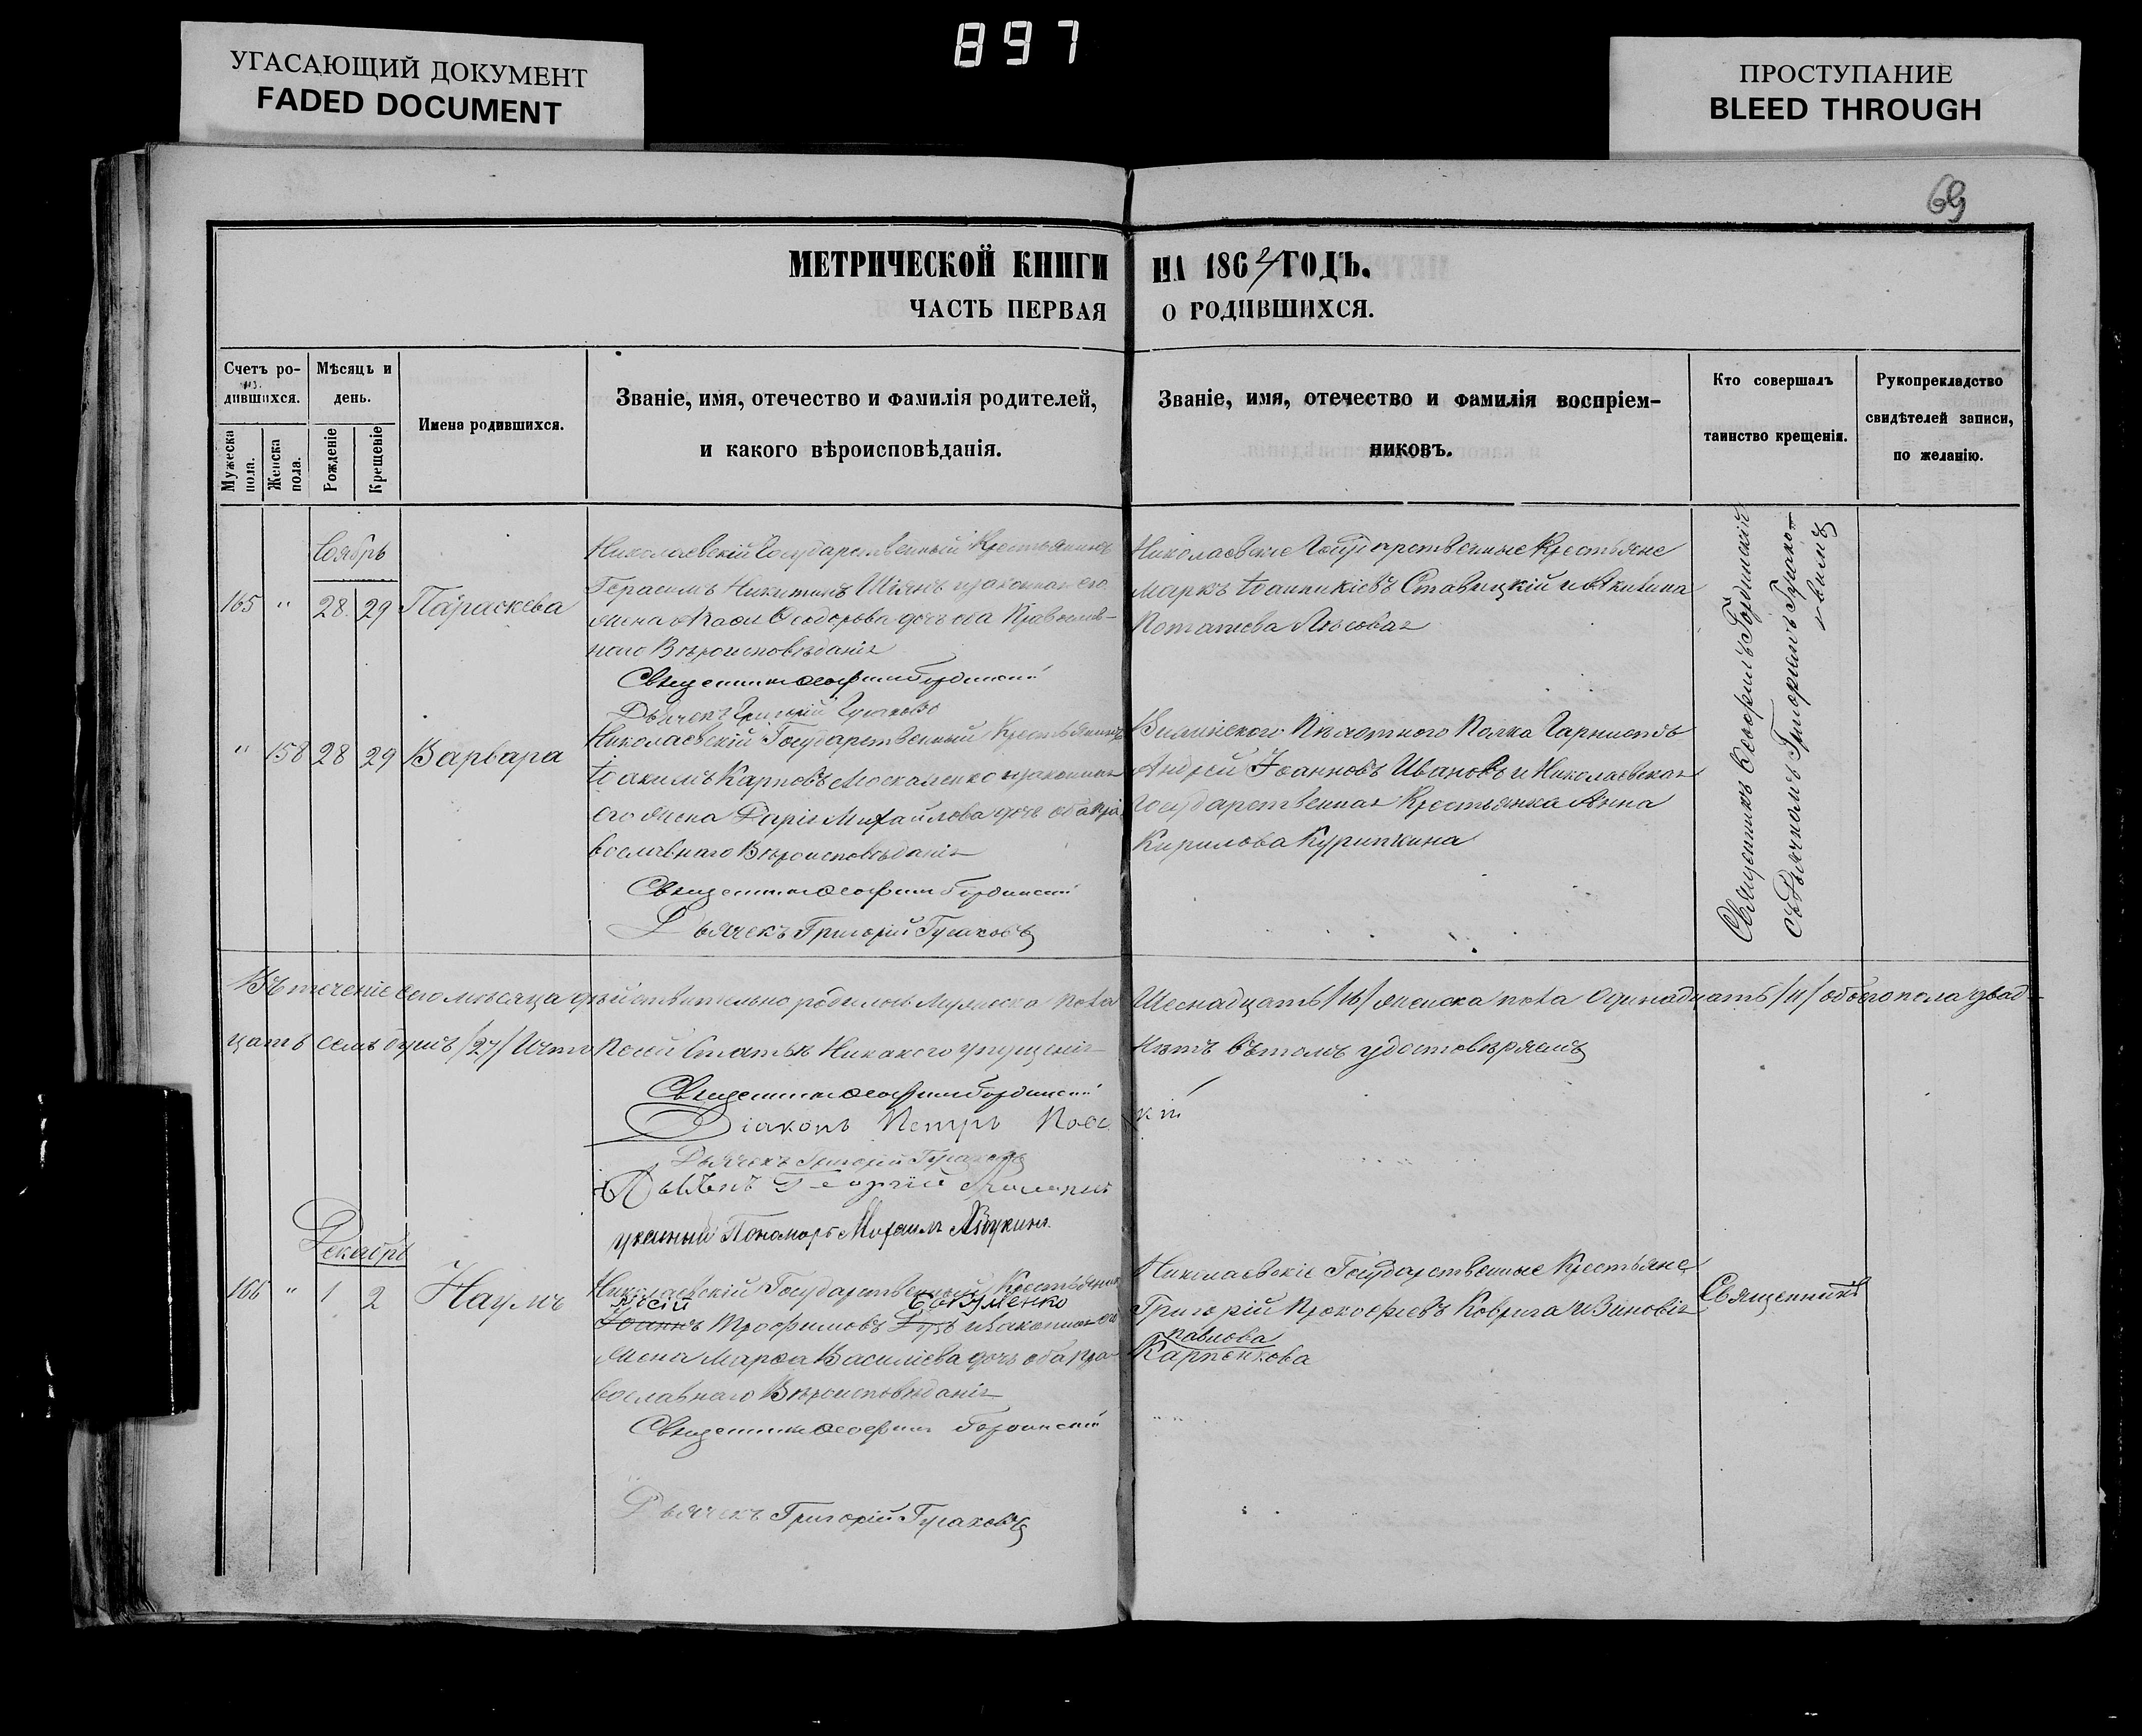 897
УГАСАЮЩИЙ ДОКУМЕНТ
FADED DOCUMENT
ПРОСТУПАНИЕ
BLEED THROUGH
69
МЕТРИЧЕСКОЙ КНИГИ НА 1864 ГОДЪ.
ЧАСТЬ ПЕРВАЯ О РОДИВШИХСЯ.
Счетъ ро-
дившихся.
Мужеска пола.
Женска пола.
Мѣсяцъ и
день.
Рожденіе
Крещеніе
Имена родившихся.
Званіе, имя, отечество и фамилія родителей,
и какого вѣроисповѣданія.
Званіе, имя, отечество и фамилія воспріем-
никовъ.
Кто совершалъ
таинство крещенія.
Рукоприкладство
свидѣтелей записи,
по желанію.
Ноябрь
165 " 28. 29 Параскева
Николаевскій Государственный Крестьянинъ
Герасимъ Никитинъ и законная его
жена Ѳеодорова оба Православ-
наго Вѣроисповѣданія
Священникъ Ѳеофилъ Гординскій
Дьячекъ Григорій Гусаковъ
Николаевскіе Государственные Крестьяне
Маркъ Іоанникіевъ Ставицкій и Акилина
Потапіева
Священникъ Ѳеофилъ Гординскій
съ Дьячкомъ Григоріемъ Гусако-
вымъ
" 158 28 29 Варвара
Николаевскій Государственный Крестьянинъ
Іоакимъ Карповъ Москаленко и законная
его жена Дарія Михайлова оба пра-
вославнаго Вѣроисповѣданія
Священникъ Ѳеофилъ Гординскій
Дьячекъ Григорій Гусаковъ
Полка
Андрей Іоанновъ Ивановъ и Николаевская
государственная Крестьянка Анна
Кирилова Курипкина
Въ теченіе сего мѣсяца дѣйствительно родилось Мужеска пола Шеснадцать /16/ женска пола Одинадцать /11/ обоего пола двад-
цать семь душъ /27/ И что по сей Статьѣ Никакого упущенія нѣтъ въ томъ удостовѣряемъ
Священникъ Ѳеофилъ Гординскій
Діаконъ Петръ
Дьячекъ Григорій Гусаковъ
Георгій
Пономарь Михаилъ
Декабрь
166 " 1 2 Наумъ
Николаевскій Государственный Крестьянинъ
Іоаннъ Трофимовъ и законная его
жена Марѳа Василіева оба пра-
вославнаго Вѣроисповѣданія
Священникъ Ѳеофилъ Гординскій
Дьячекъ Григорій Гусаковъ
Николаевскіе Государственные Крестьяне
Григорій Прокофіевъ Коврига и Зиновія
Павлова
Карпенкова
Священникъ